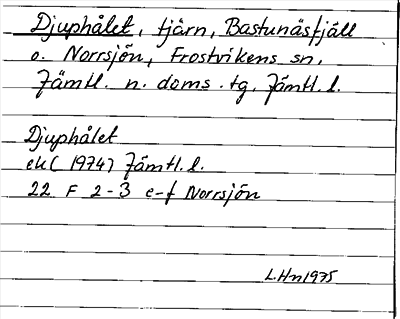 Djuphålet, tjärn, Bastunäsfjäll
o. Norrsjön, Frostvikens sn,
Jämtl. n. doms. tg, Jämtl. l.
Djuphålet
ek (1974) Jämtl. l.
22 F 2-3 e-f Norrsjön
L.Hn 1975